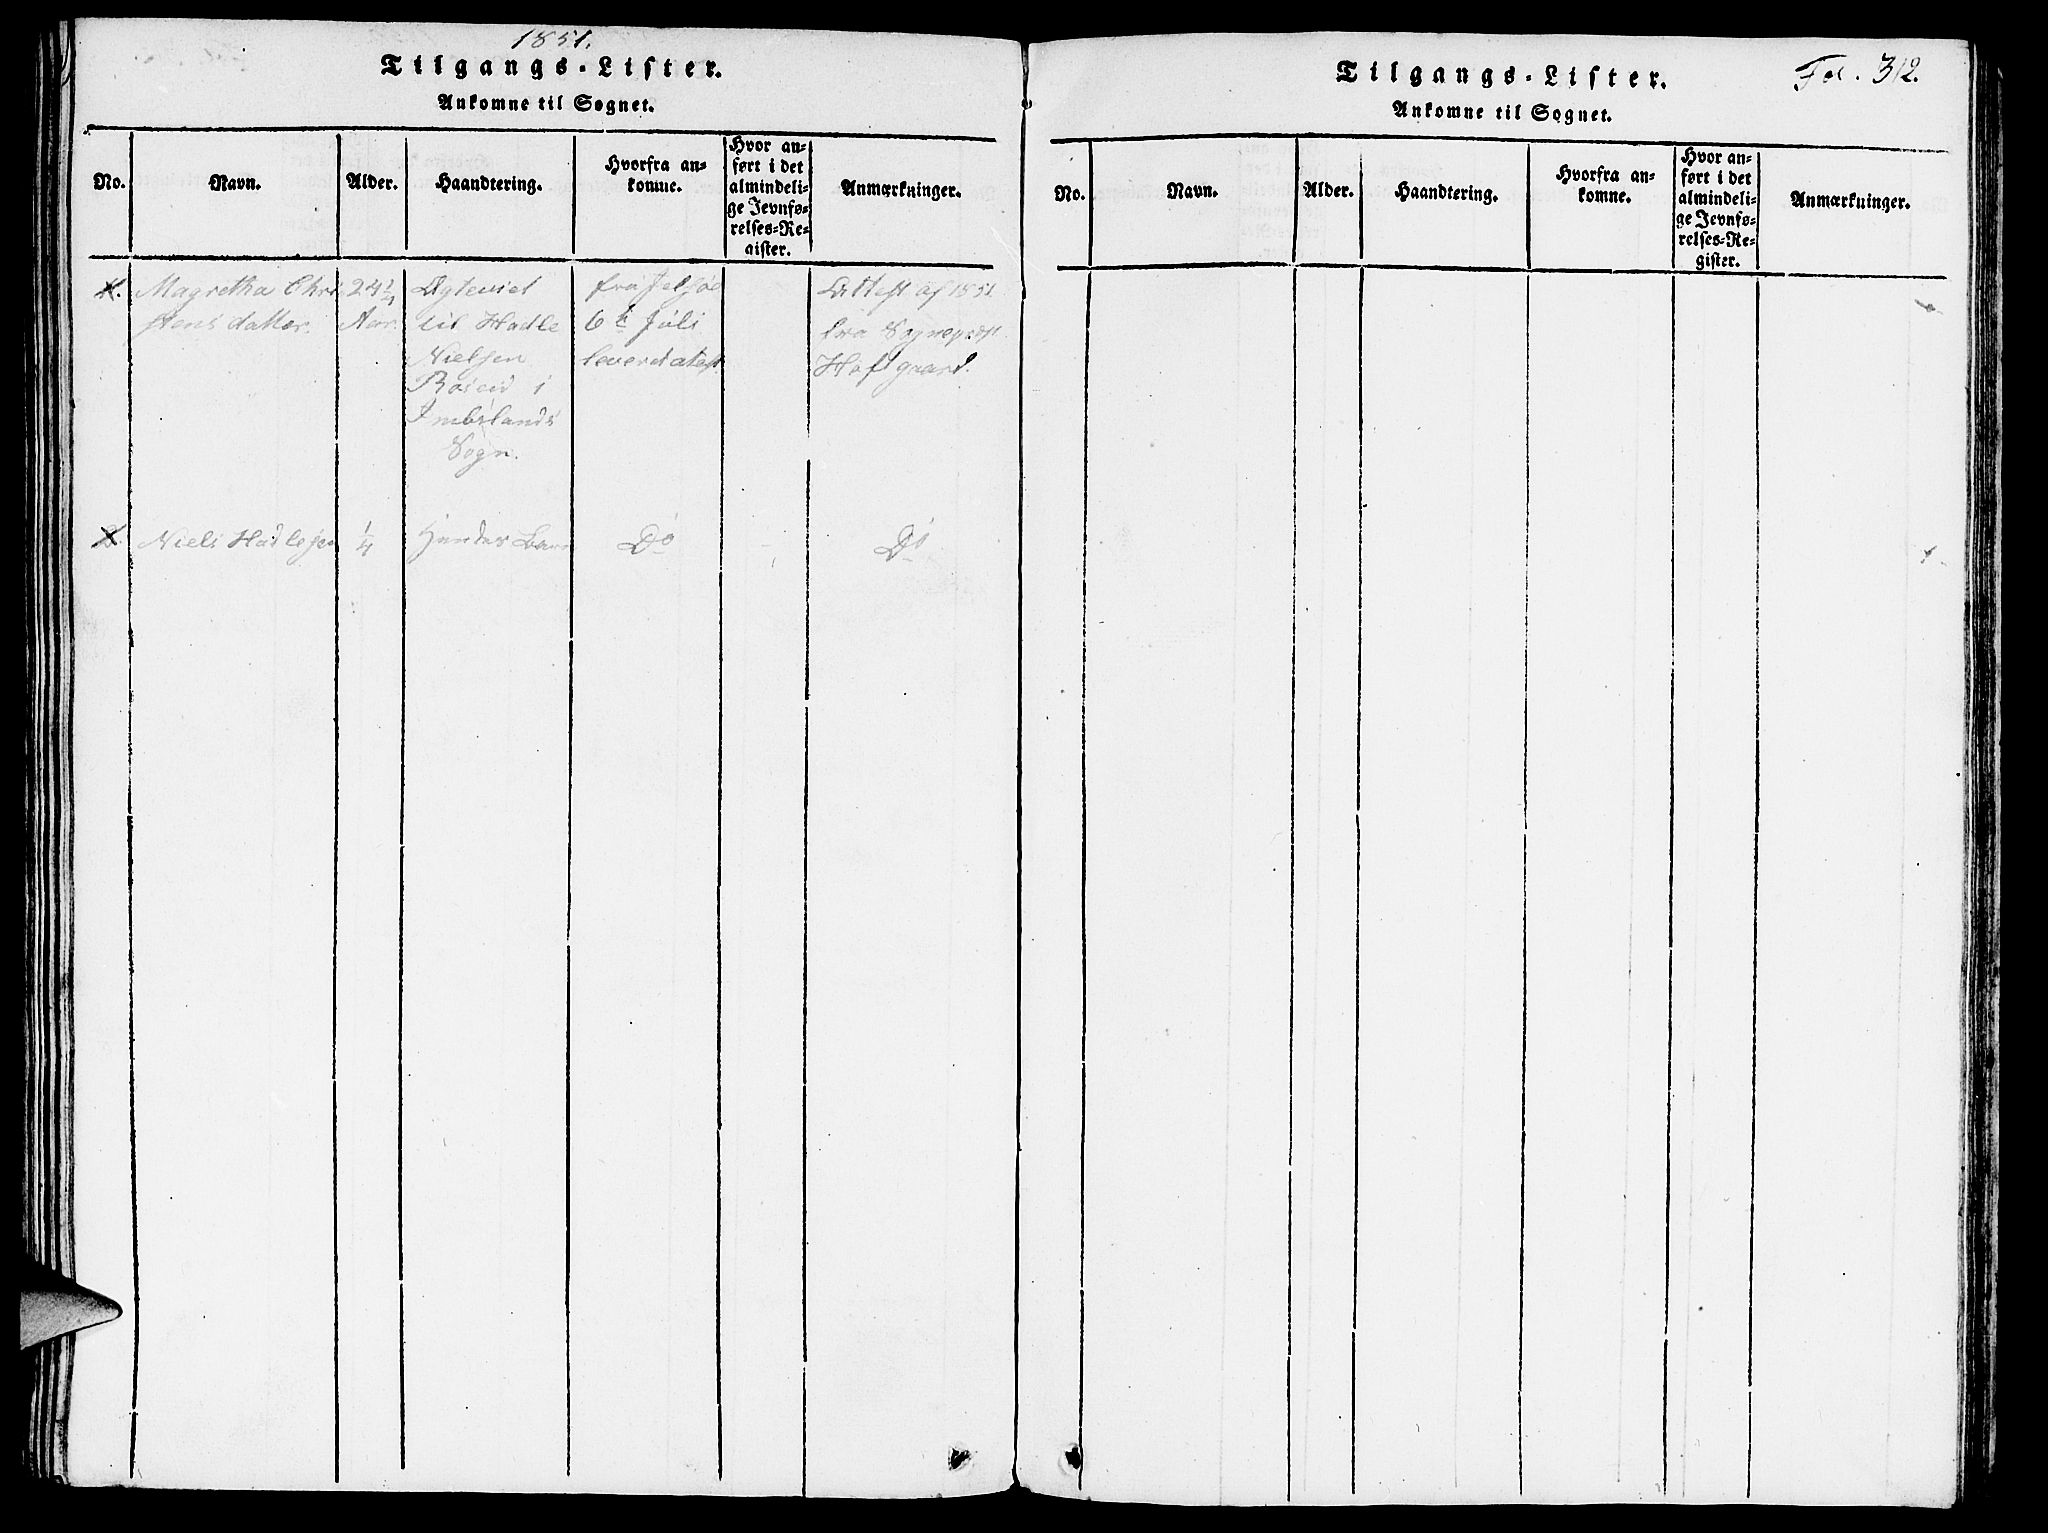 1851.
Tilgangs-Lister.
Ankomne til Sognet.
No.
Navn.
Alder.
Haandtering.
Hvorfra an-
komne.
Hvor an-
ført i det
almindeli-
ge Jevnfø-
relses-Re-
gister.
Anmærkninger.
1.
Magretha Chri
stens datter.
24 1/4
Aar.
til Hadle
Nielsen
i
Imbslands
Sogn.
fra Jelsøe
6te Juli
Attest af 1851
fra Sognepræst
Hofgaard.
2.
Niels Hadlesen
1/4
Hendes Barn
Do
Do
Fol. 312.
Tilgangs-Lister.
Ankomne til Sognet.
No.
Navn.
Alder.
Haandtering.
Hvorfra an-
komne.
Hvor an-
ført i det
almindeli-
ge Jevnfø-
relses-Re-
gister.
Anmærkninger.